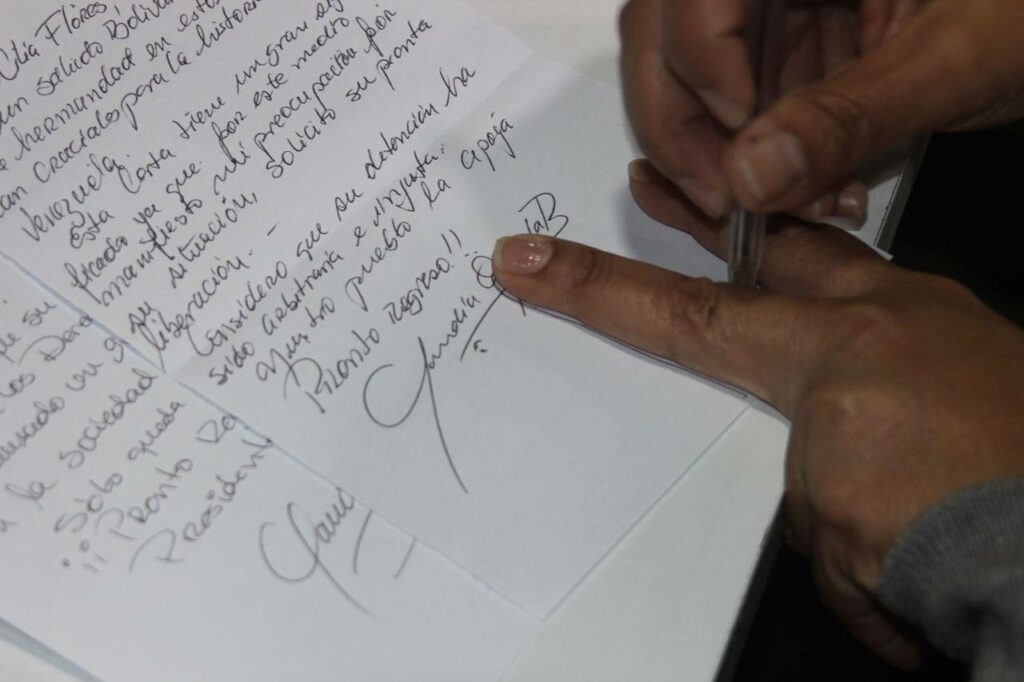 Cilia Flores
un saludo Boliva
e hermandad en esto
an cruciales para la histor
Venezuela.
Esta Carta tiene un gran sig
ficado ya que por este medio
manifiesto mi preocupación por
su situación, solicito su pronta
liberación.-
Considero que su detención ha
sido arbitraria e injusta.
Nuestro pueblo la apoya
Pronto Regreso!!
Claudia
B
de su
los Dere
un
a la sociedad
Sólo queda
¡¡Pronto Re
President
Clau